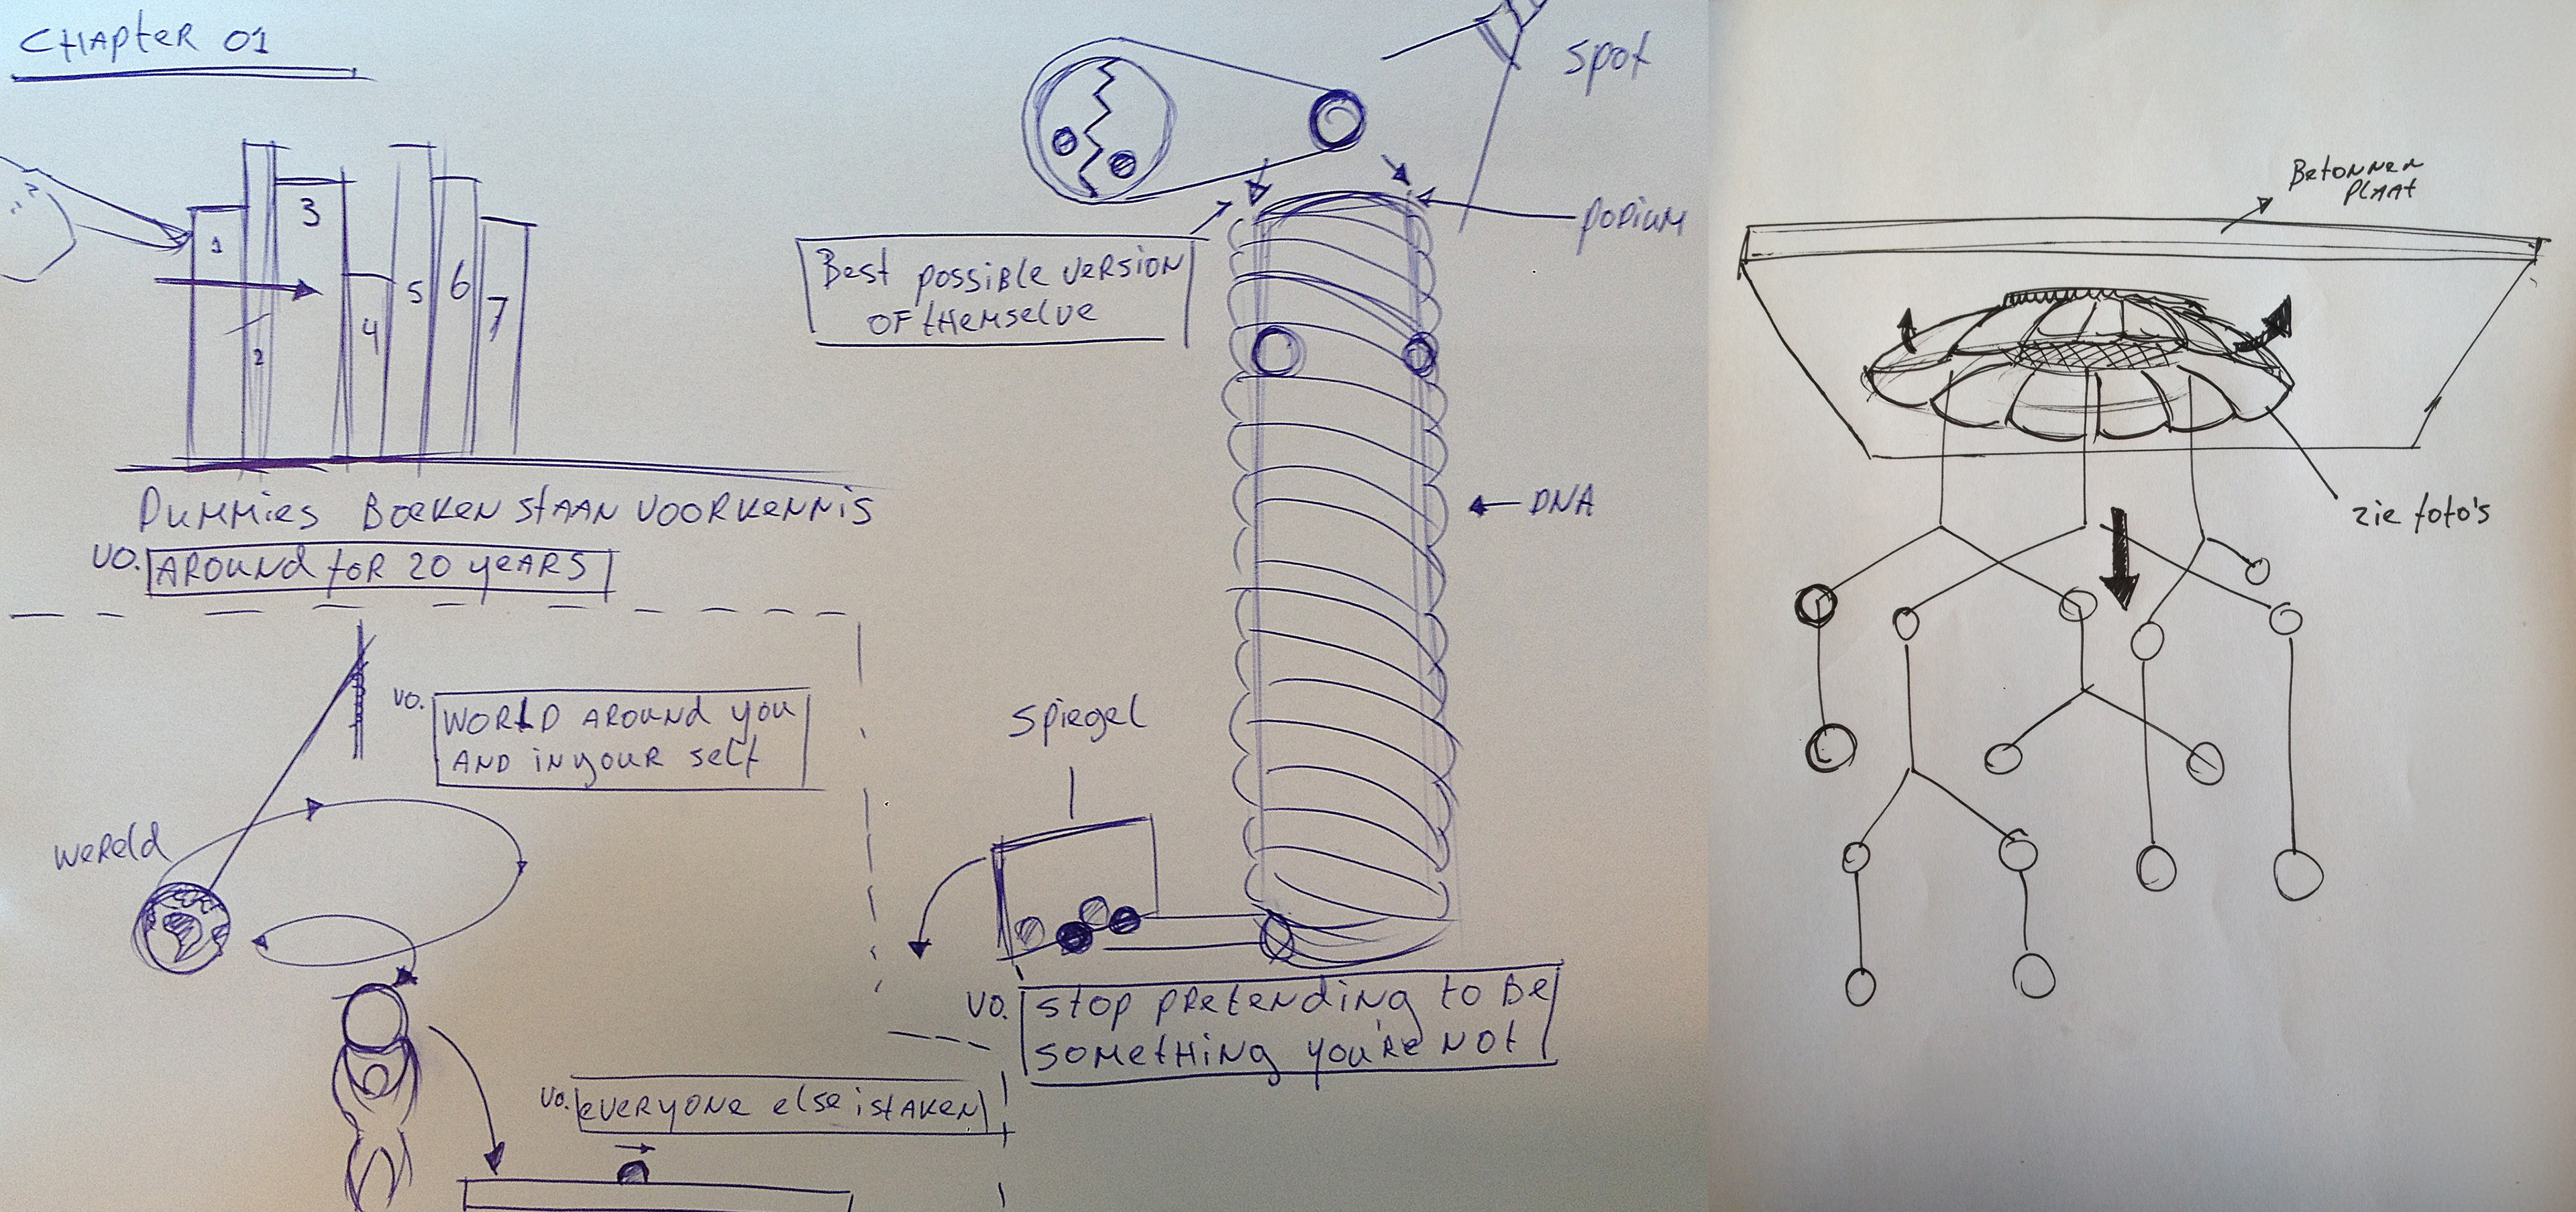 CHAPTER 01
1
2
3
4
5
6
7
DUMMIES BOEKEN STAAN VOOR KENNIS
VO. AROUND FOR 20 YEARS
VO. WORLD AROUND YOU
AND IN YOUR SELF
WERELD
VO. EVERYONE ELSE IS TAKEN
SPOT
PODIUM
BEST POSSIBLE VERSION
OF THEMSELVE
DNA
SPIEGEL
VO. STOP PRETENDING TO BE
SOMETHING YOU'RE NOT
BETONNEN
PLAAT
zie foto's